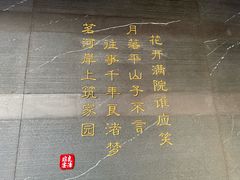 花开满院谁应笑
月落平山子不言
往事千年良渚梦
茗河岸上筑家园